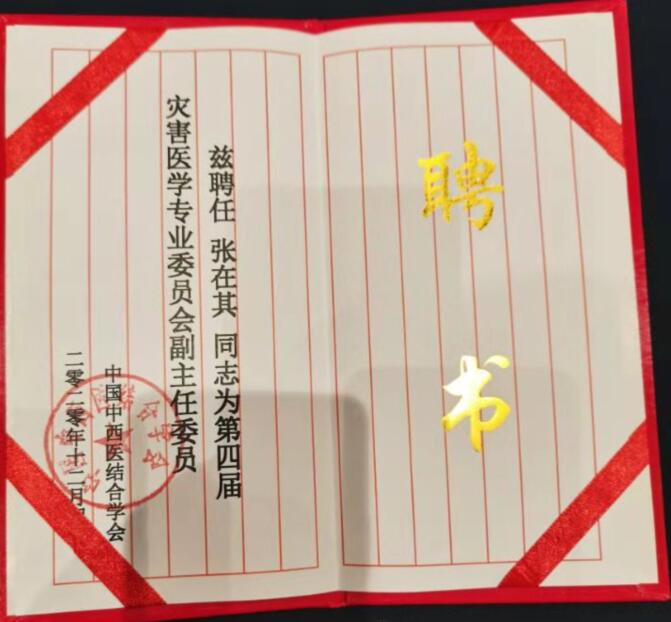 聘书
兹聘任 张在其 同志为第四届
灾害医学专业委员会副主任委员
中国中西医结合学会
二零二零年十二月